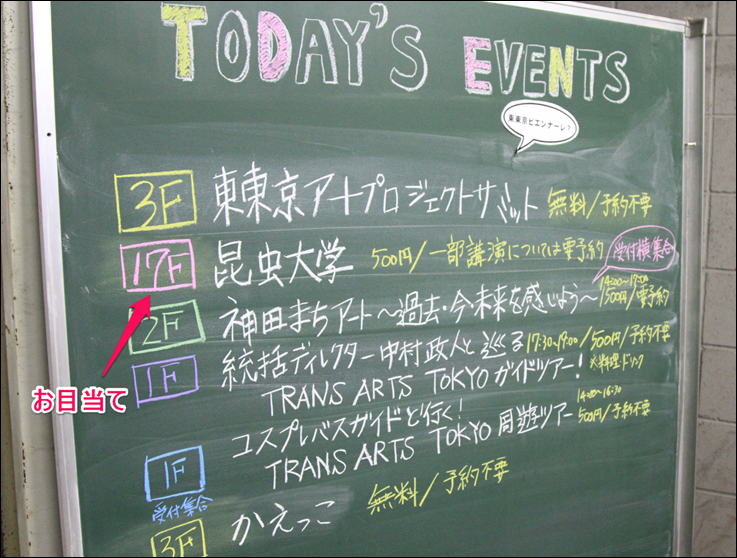 TODAY'S EVENTS
東東京ビエンナーレ?
3F 東東京アートプロジェクトサミット 無料/予約不要
17F 昆虫大学 500円/一部講演については要予約 受付横集合
お目当て
2F 神田まちアート〜過去・今・未来を感じよう〜 14:00〜17:00 1500円/要予約
1F 統括ディレクター中村政人と巡る 17:30〜19:00/500円/予約不要
TRANS ARTS TOKYO ガイドツアー! ※料理ドリンク
コスプレバスガイドと行く!
1F TRANS ARTS TOKYO 周遊ツアー 14:00〜16:30 500円/予約不要
受付集合
3F かえっこ 無料/予約不要